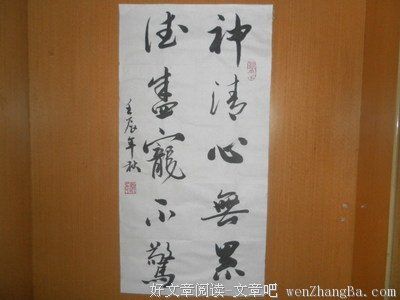 神清心無累
德盛寵不驚
壬辰年秋
好文章阅读-文章吧 wenZhangBa.com